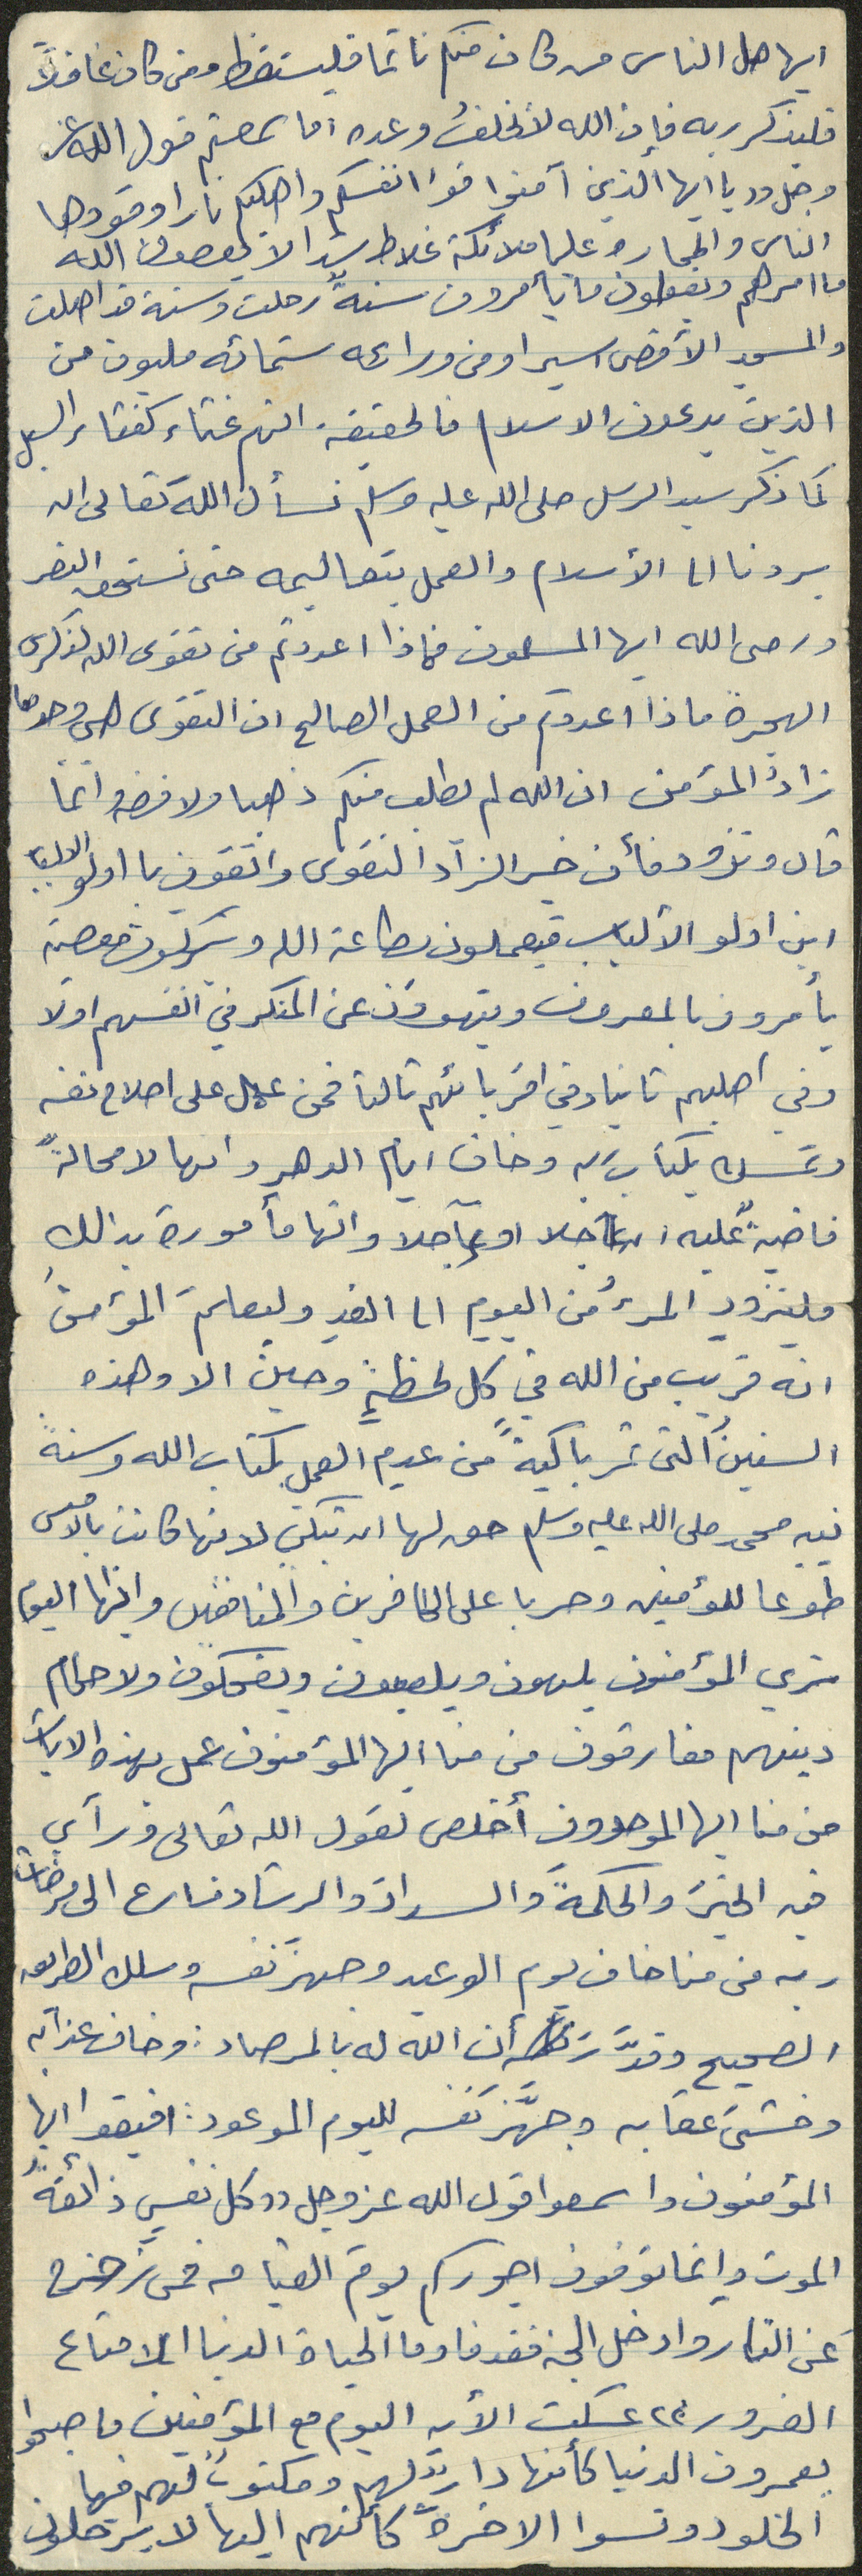 ايها الناس من كان منكم نائما فليستيقظ ومن كان غافلاً
فليذكر ربه فإن الله لا يخلف وعده اما سمعتم قول الله عز
وجل (( يا ايها الذين آمنوا قوا انفسكم واهليكم نارا وقودها
الناس والحجارة عليها ملائكة غلاظ شداد لا يعصون الله
ما امرهم ويفعلون ما يأمرون سنةٌ رحلت وسنة قد اهلت
والمسجد الأقصى اسيرا ومن ورائه ستمائه مليون من
الذين يدعون الاسلام فالحقيقة انهم غثاء كغثاء السيل
كما ذكر سيد الرسل صلى الله عليه وسلم نسأل الله تعالى ان
يردنا الى الأسلام والعمل بتعاليمه حتى نستحق النصر
ورضى الله ايها المسلمون فماذا اعددتم من تقوى الله لذكرى
الهجرة ماذا اعددتم من العمل الصالح ان التقوى هي وحدها
زادُ المؤمن ان الله لم يطلب منكم ذهبا ولا فضه وانما
قال وتزودو فأن خير الزاد التقوى واتقون يا اولو الالباب
اين اولو الألباب فيعملون بطاعة الله ويتركون معصيته
يأمرون بالمعروف وينهون عن المنكر في انفسهم اولا
وفي اهليهم ثانيا وفي اقربائهم ثالثا فمن عمل على اصلاح نفسه
وتمسك بكتاب ربه وخاف ايام الدهر وانها لا محالةً
قاضيةٌ عليه ان عاجلا او آجلا وانها مأمورة بذالك
فليتزود المرءُ من اليوم الى الغدِ وليعلم المؤمنُ
انه قريب من الله في كل لحظةٍ وحين الا وهذه
السنينُ التي تمر باكيةً من عدم العمل بكتاب الله وسنة
نبيه محمد صلى الله عليه وسلم حق لها ان تبكي لانها كانت بالامس
طوعا للمؤمنين وحربا على الكافرين والمنافقين وانها اليوم
ترى المؤمنون يلهون ويلعبون ويضحكون ولاحكام
دينهم مفارقون من منا ايها المؤمنون عمل بهذه الايات
من منا ايها الموحدون أخلص لقول الله تعالى ورآى
فيه الخيرَ والحكمةَ والسدادَ والرشاد فسارع الى مرضات
ربه من منا خاف يوم الوعيد وجهز نفسه وسلك الطريق
الصحيح وقدَّر أن الله له بالمرصاد : وخاف عذابه
وخشي عقابه وجهَّز نفسه لليوم الموعود : افيقوا ايها
المؤمنون واسمعوا قول الله عز وجل (( كل نفسٍ ذائقةُ
الموت وانما توفون اجوركم يوم القيامه فمن زحزح
عن النار وادخل الجنه فقد فاز وما الحياة الدنيا الا متاع
الغرور )) عكست الأيه اليوم مع المؤمنين فاصبحوا
يعمرون الدنيا كأنها دارٌ لهم ومكتوبٌ لهم فيها
الخلود ونسوا الاخرة كأنهم اليها لا يرحلون